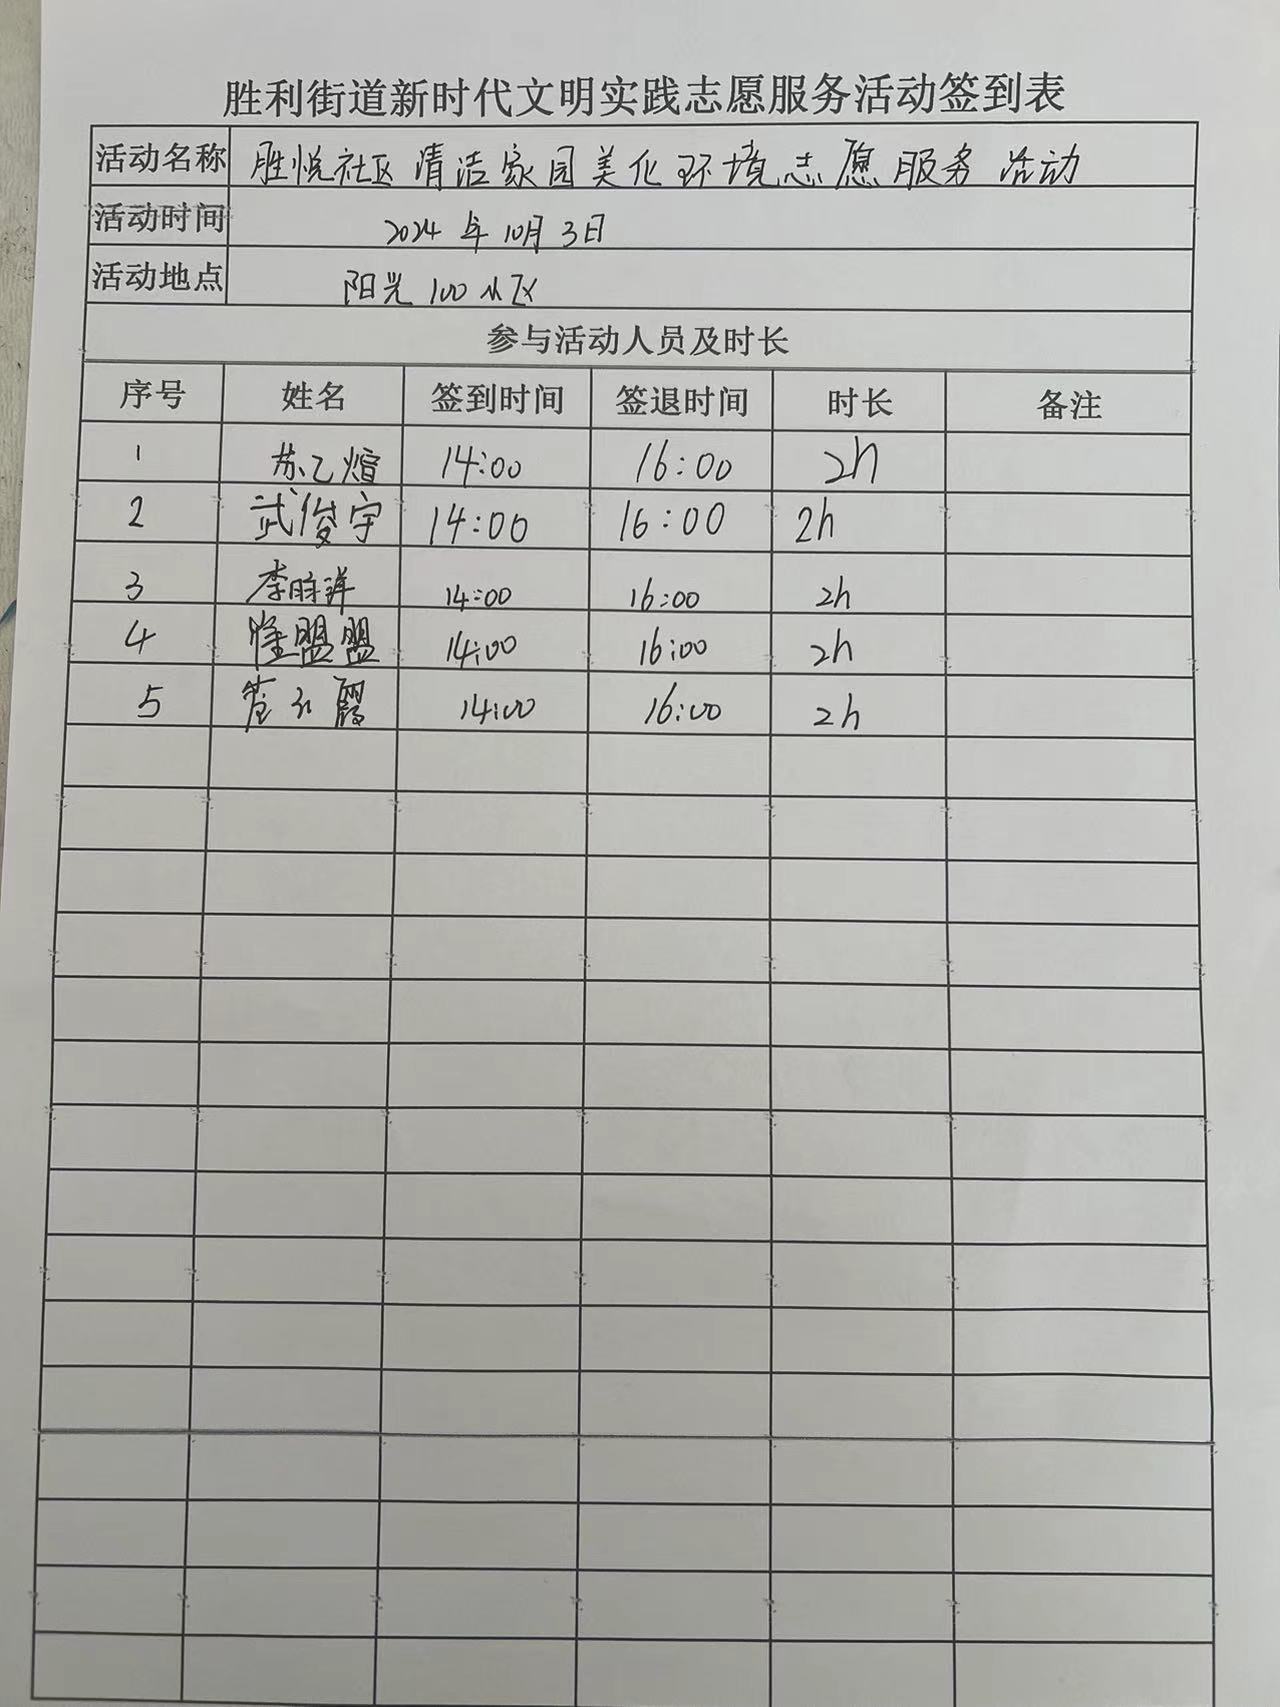 胜利街道新时代文明实践志愿服务活动签到表
活动名称 胜悦社区清洁家园美化环境志愿服务活动
活动时间 2024年10月3日
活动地点 阳光100小区
参与活动人员及时长
序号 姓名 签到时间 签退时间 时长 备注
1 苏乙煊 14:00 16:00 2h
2 武俊宇 14:00 16:00 2h
3 14:00 16:00 2h
4 14:00 16:00 2h
5 14:00 16:00 2h